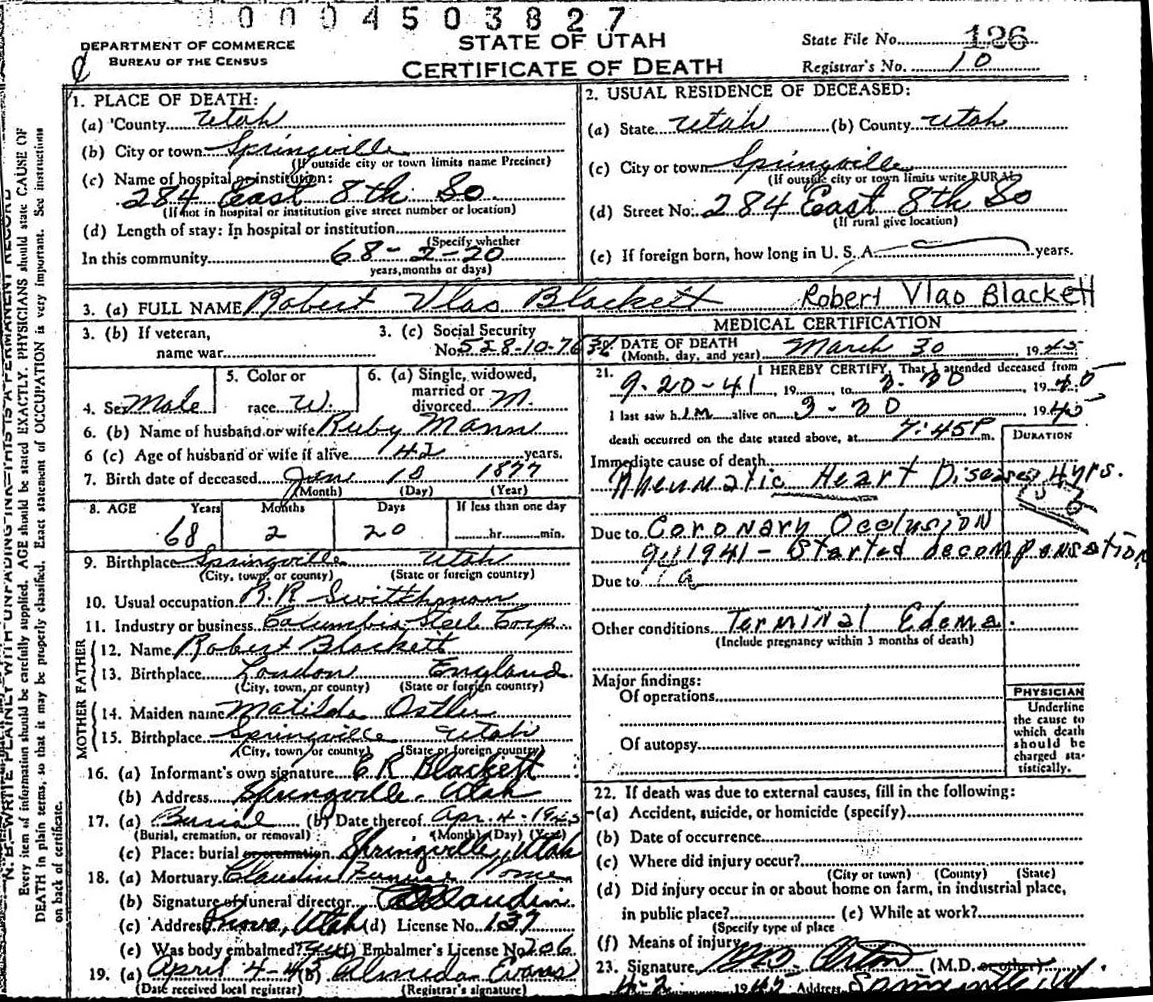 0004503827
DEPARTMENT OF COMMERCE
BUREAU OF THE CENSUS
STATE OF UTAH
CERTIFICATE OF DEATH
State File No. 126
Registrar's No. 10
N. B.—WRITE PLAINLY WITH UNFADING INK—THIS IS A PERMANENT RECORD
Every item of information should be carefully supplied. AGE should be stated EXACTLY. PHYSICIANS should state CAUSE OF
DEATH in plain terms, so that it may be properly classified. Exact statement of OCCUPATION is very important. See instructions
on back of certificate.
1. PLACE OF DEATH:
(a) County Utah
(b) City or town Springville
(If outside city or town limits name Precinct)
(c) Name of hospital or institution:
284 East 8th So
(If not in hospital or institution give street number or location)
(d) Length of stay: In hospital or institution
(Specify whether
In this community 68-2-20
years, months or days)
2. USUAL RESIDENCE OF DECEASED:
(a) State Utah (b) County Utah
(c) City or town Springville
(If outside city or town limits write RURAL
(d) Street No. 284 East 8th So
(If rural give location)
(e) If foreign born, how long in U. S. A. years.
3. (a) FULL NAME Robert Vlao Blackett Robert Vlao Blackett
3. (b) If veteran,
name war
3. (c) Social Security
No. 528-10-76
4. Sex Male
5. Color or
race W.
6. (a) Single, widowed,
married or
divorced M.
6. (b) Name of husband or wife Ruby Mann
6 (c) Age of husband or wife if alive years.
7. Birth date of deceased Jan 10 1877
(Month) (Day) (Year)
8. AGE Years Months Days If less than one day
68 2 20 hr. min.
9. Birthplace Springville Utah
(City, town, or county) (State or foreign country)
10. Usual occupation R.R Switchman
11. Industry or business Columbia Steel Corp
FATHER
12. Name Robert Blackett
13. Birthplace London England
(City, town, or county) (State or foreign country)
MOTHER
14. Maiden name Matilda Ostler
15. Birthplace Springville Utah
(City, town, or county) (State or foreign country)
16. (a) Informant's own signature E R Blackett
(b) Address Springville, Utah
17. (a) Burial (b) Date thereof Apr. 4-1945
(Burial, cremation, or removal) (Month) (Day) (Year)
(c) Place: burial or cremation Springville, Utah
18. (a) Mortuary Claudin Funeral Home
(b) Signature of funeral director Claudin
(c) Address Provo, Utah (d) License No. 137
(e) Was body embalmed? Yes (f) Embalmer's License No. 206
19. (a) April 4-45 Almeda Evans
(Date received local registrar) (Registrar's signature)
MEDICAL CERTIFICATION
20. DATE OF DEATH
(Month, day, and year) March 30 1945
21. I HEREBY CERTIFY, That I attended deceased from
9-20-41, 19 to 3-30, 1945
I last saw him alive on 3-30, 1945
death occurred on the date stated above, at 7:45 P m.
DURATION
Immediate cause of death
Rheumatic Heart Disease 4 yrs.
Due to Coronary Occlusion
1941 - Started decompensation
Due to
Other conditions Terminal Edema.
(Include pregnancy within 3 months of death)
Major findings:
Of operations
Of autopsy
PHYSICIAN
Underline
the cause to
which death
should be
charged sta-
tistically.
22. If death was due to external causes, fill in the following:
(a) Accident, suicide, or homicide (specify)
(b) Date of occurrence
(c) Where did injury occur?
(City or town) (County) (State)
(d) Did injury occur in or about home on farm, in industrial place,
in public place? (e) While at work?
(Specify type of place
(f) Means of injury
23. Signature Orton (M.D. or other)
4-2 1945 Address Springville, U.